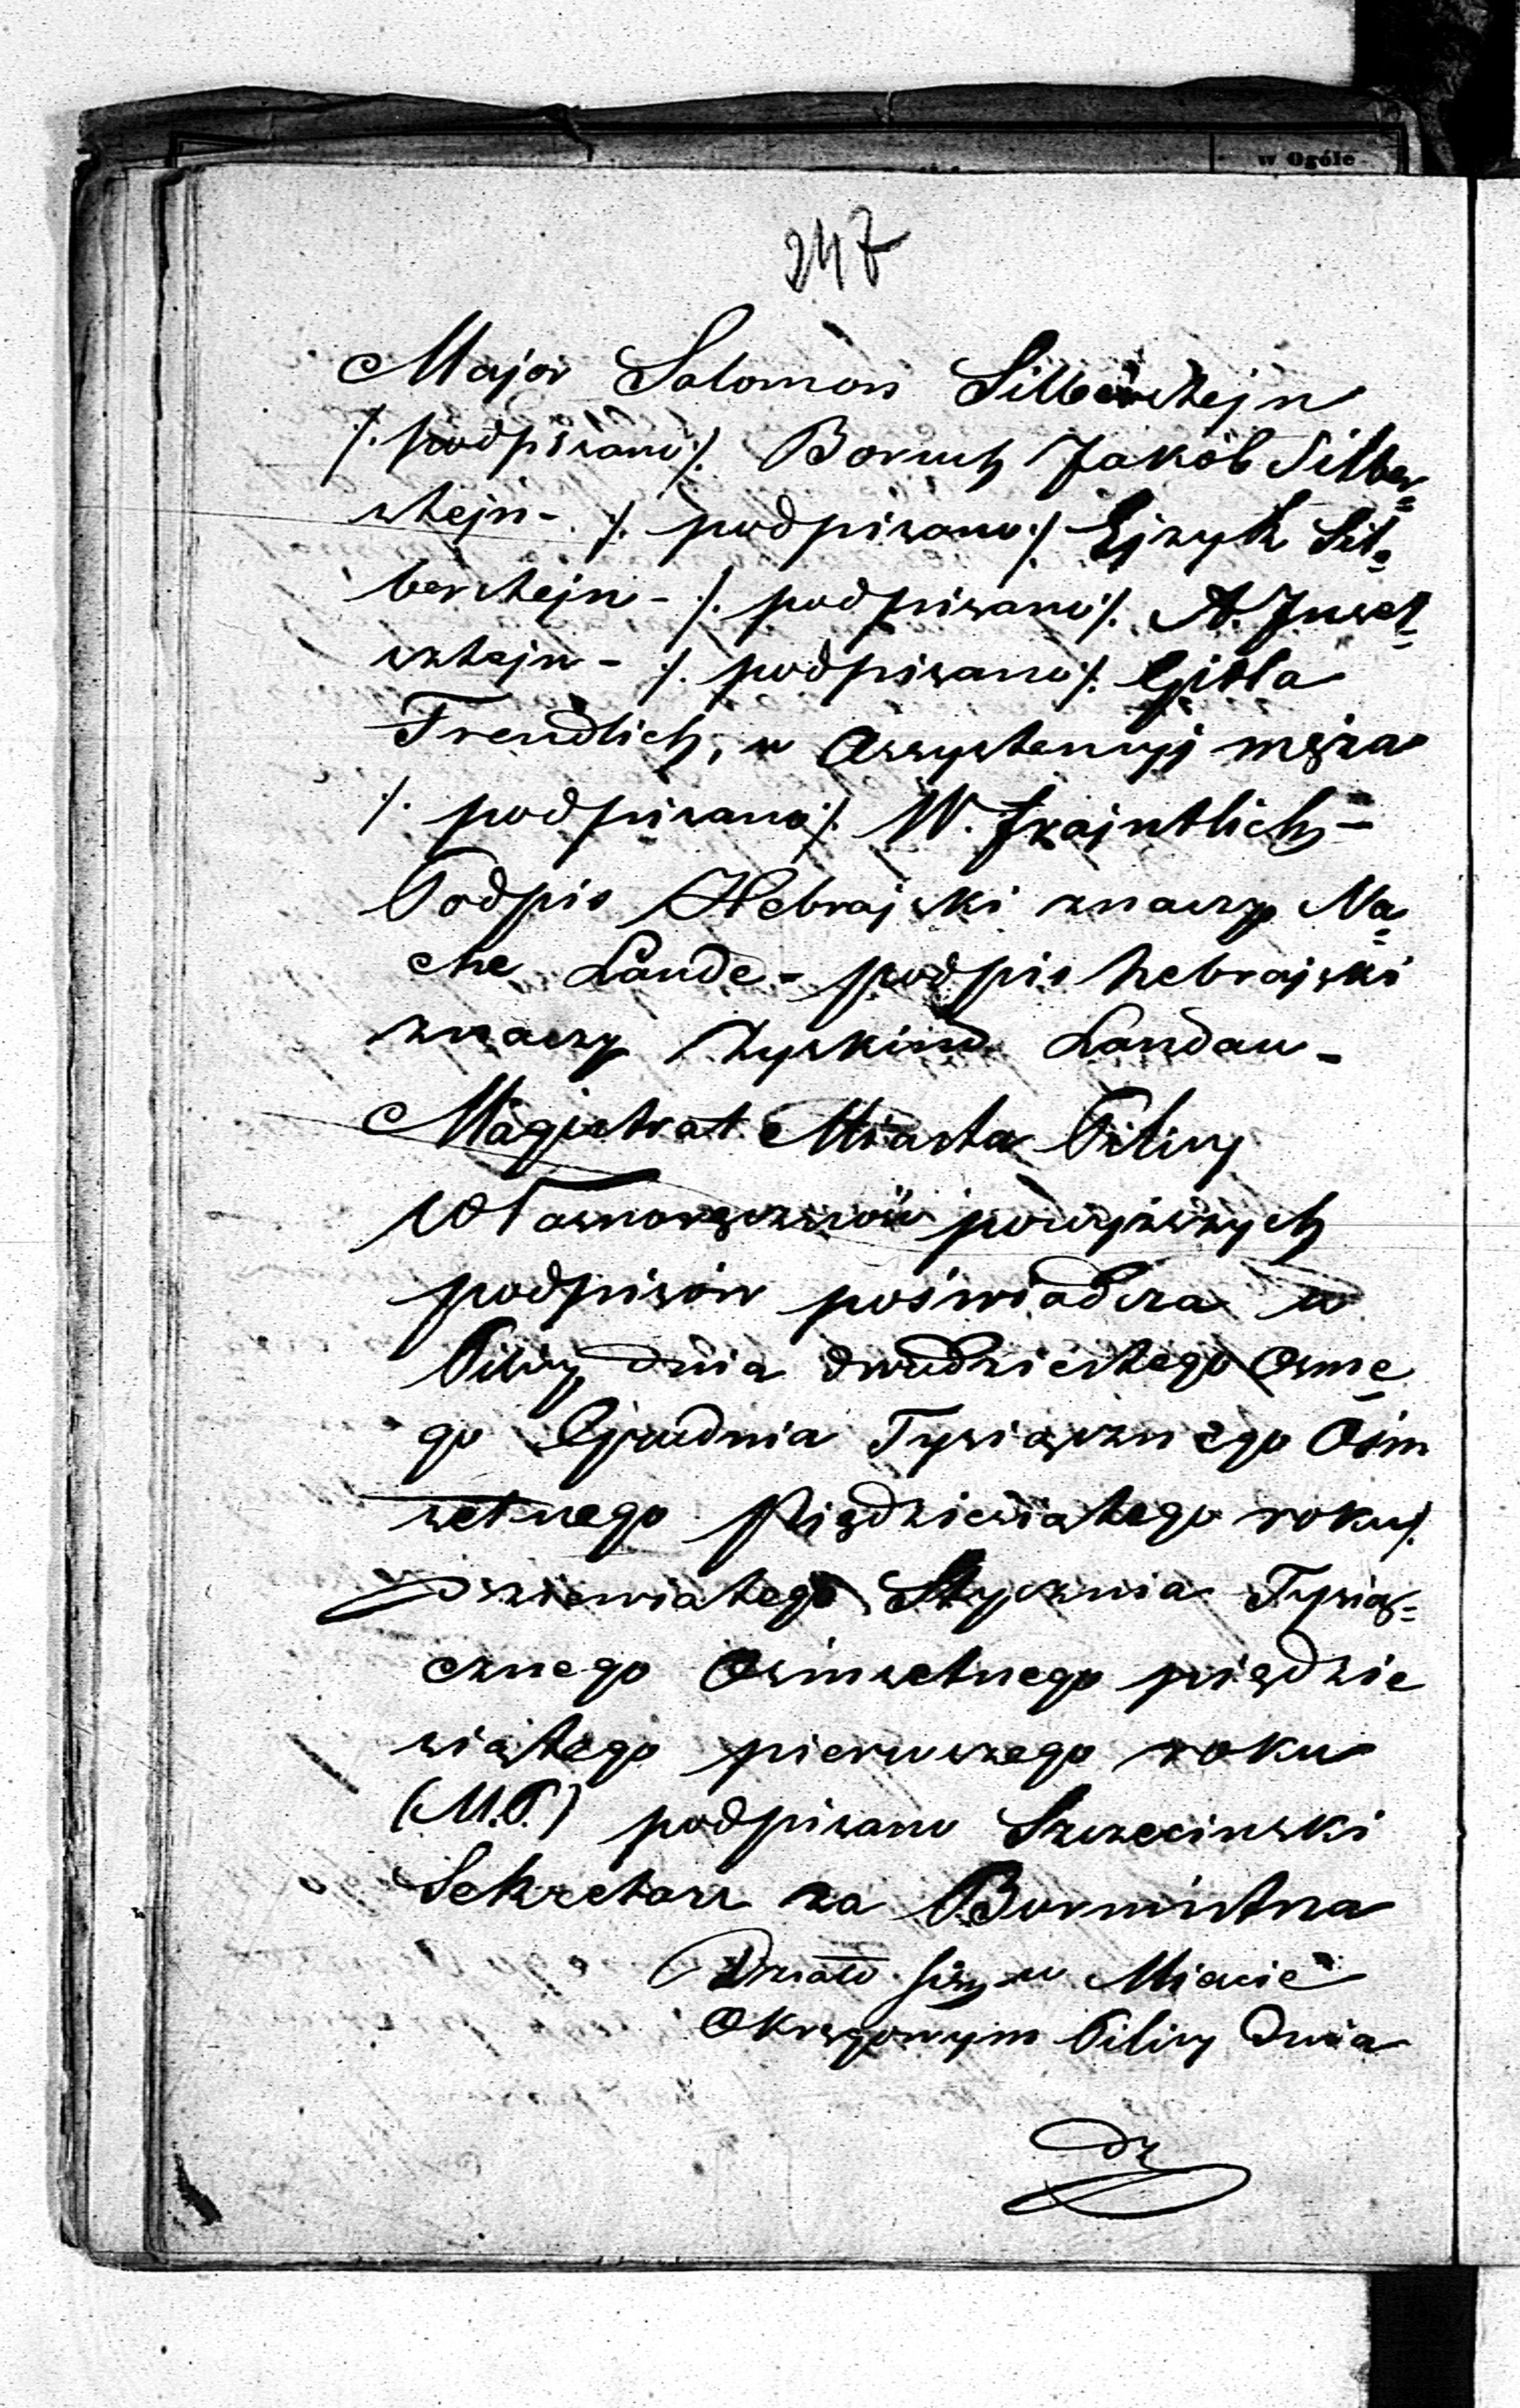 w Ogóle
247
Major Salomon Silbersztejn
/. podpisano/. Boruch Jakób Silber=
sztejn - /. podpisano/. Ejzyk Sil=
bersztejn - /. podpisano/. A. Juwel=
sztejn - /. podpisano/. Gitla
Freudlich, w Assystencyj męża
/. podpisano/. W. Frajntlich -
Podpis Hebrajski znaczy Na=
che Lande - podpis hebrajski
znaczy Zyskind Landau -
Magistrat Miasta Pilicy
Własnoręczność powyższych
podpisów poświadcza w
Pilicy dnia dwudziestego osme
go Grudnia Tysiącznego Ośm
setnego Pięćdziesiątego roku/.
Dziewiątego Stycznia Tysią=
cznego Ośmsetnego pięćdzie
siątego pierwszego roku
(M.P.) podpisano Szczeciński
Sekretarz za Burmistrza
Działo się w Mieście
Okręgowym Pilicy Dnia